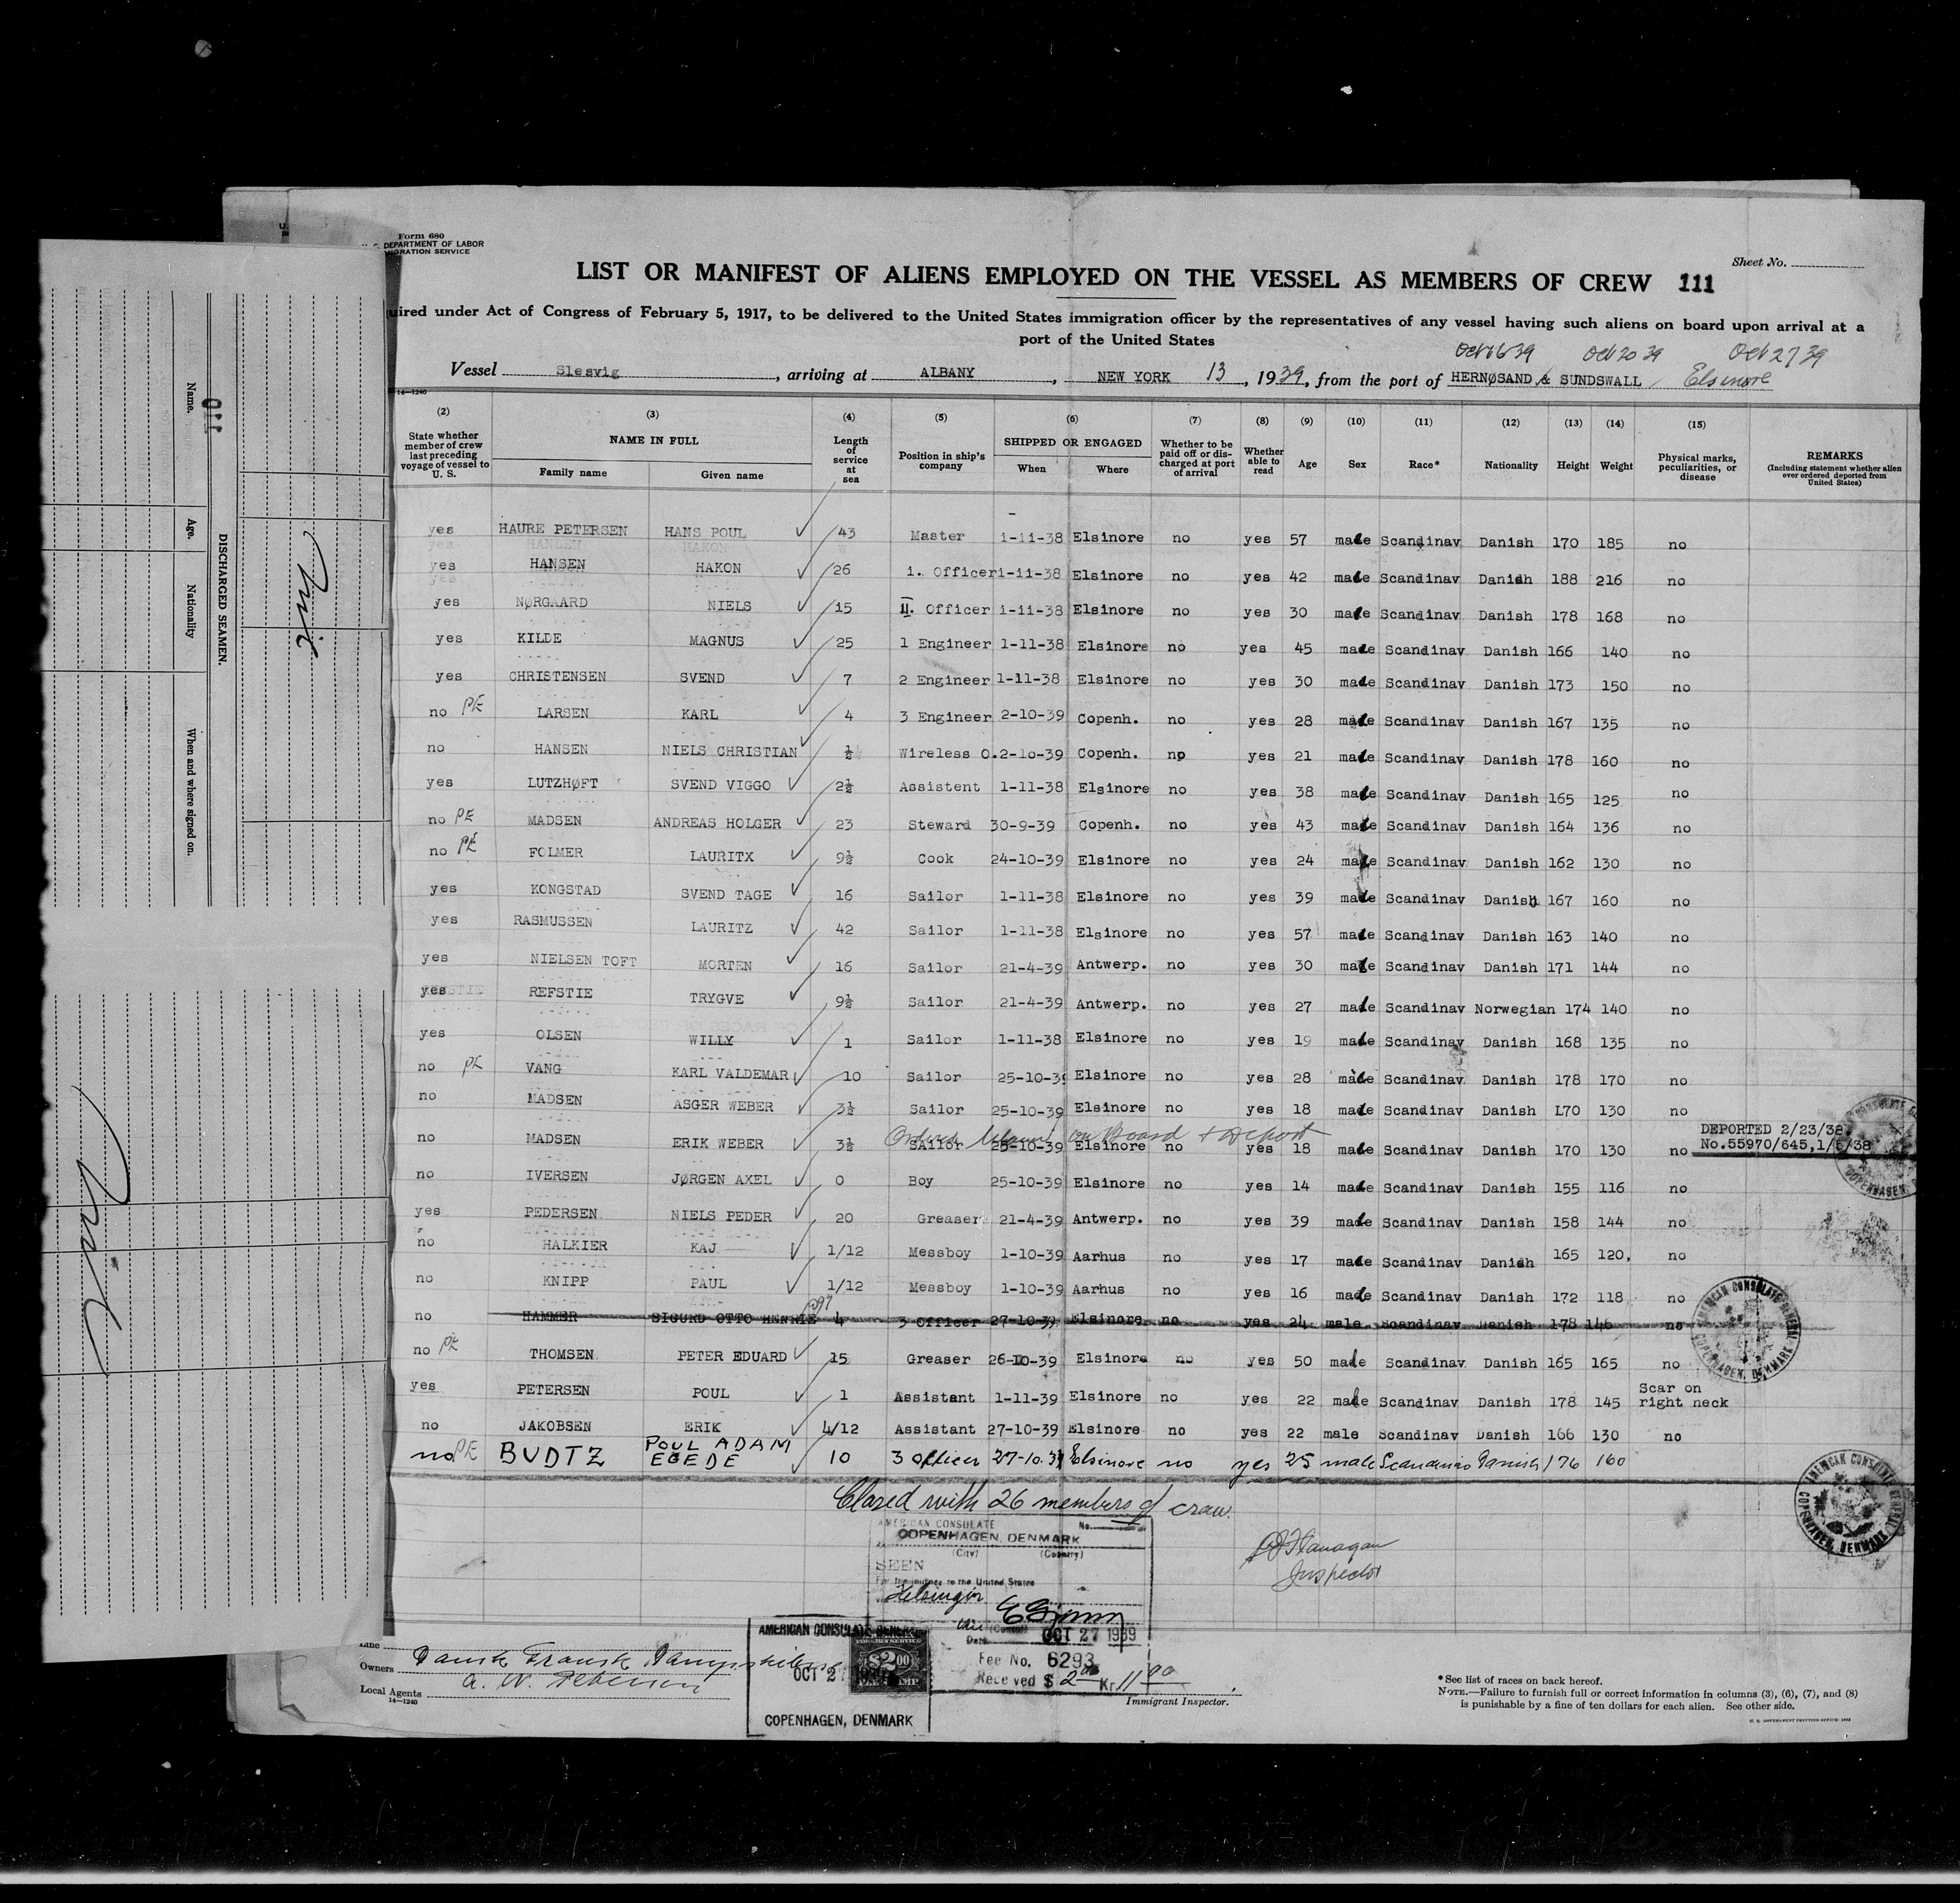 Form 680
DEPARTMENT OF LABOR
IGRATION SERVICE
Sheet No.
LIST OR MANIFEST OF ALIENS EMPLOYED ON THE VESSEL AS MEMBERS OF CREW 111
uired under Act of Congress of February 5, 1917, to be delivered to the United States immigration officer by the representatives of any vessel having such aliens on board upon arrival at a
port of the United States
Oct 16 39 Oct 20 39 Oct 27 39
Vessel Slesvig, arriving at ALBANY, NEW YORK 13, 1939, from the port of HERNØSAND & SUNDSWALL / Elsinore
14—1240
(2) (3) (4) (5) (6) (7) (8) (9) (10) (11) (12) (13) (14) (15)
State whether member of crew last preceding voyage of vessel to U. S. | NAME IN FULL Family name Given name | Length of service at sea | Position in ship's company | SHIPPED OR ENGAGED When Where | Whether to be paid off or discharged at port of arrival | Whether able to read | Age | Sex | Race* | Nationality | Height | Weight | Physical marks, peculiarities, or disease | REMARKS (Including statement whether alien ever ordered deported from United States)
yes HAURE PETERSEN HANS POUL 43 Master 1-11-38 Elsinore no yes 57 male Scandinav Danish 170 185 no
yes HANSEN HAKON 26 1. Officer 1-11-38 Elsinore no yes 42 male Scandinav Danish 188 216 no
yes NØRGAARD NIELS 15 II. Officer 1-11-38 Elsinore no yes 30 male Scandinav Danish 178 168 no
yes KILDE MAGNUS 25 1 Engineer 1-11-38 Elsinore no yes 45 male Scandinav Danish 166 140 no
yes CHRISTENSEN SVEND 7 2 Engineer 1-11-38 Elsinore no yes 30 male Scandinav Danish 173 150 no
no PE LARSEN KARL 4 3 Engineer 2-10-39 Copenh. no yes 28 male Scandinav Danish 167 135 no
no HANSEN NIELS CHRISTIAN ½ Wireless O. 2-10-39 Copenh. no yes 21 male Scandinav Danish 178 160 no
yes LUTZHØFT SVEND VIGGO 2½ Assistent 1-11-38 Elsinore no yes 38 male Scandinav Danish 165 125 no
no PE MADSEN ANDREAS HOLGER 23 Steward 30-9-39 Copenh. no yes 43 male Scandinav Danish 164 136 no
no PE FOLMER LAURITX 9½ Cook 24-10-39 Elsinore no yes 24 male Scandinav Danish 162 130 no
yes KONGSTAD SVEND TAGE 16 Sailor 1-11-38 Elsinore no yes 39 male Scandinav Danish 167 160 no
yes RASMUSSEN LAURITZ 42 Sailor 1-11-38 Elsinore no yes 57 male Scandinav Danish 163 140 no
yes NIELSEN TOFT MORTEN 16 Sailor 21-4-39 Antwerp. no yes 30 male Scandinav Danish 171 144 no
yes REFSTIE TRYGVE 9½ Sailor 21-4-39 Antwerp. no yes 27 male Scandinav Norwegian 174 140 no
yes OLSEN WILLY 1 Sailor 1-11-38 Elsinore no yes 19 male Scandinav Danish 168 135 no
no PE VANG KARL VALDEMAR 10 Sailor 25-10-39 Elsinore no yes 28 male Scandinav Danish 178 170 no
no MADSEN ASGER WEBER 3½ Sailor 25-10-39 Elsinore no yes 18 male Scandinav Danish 170 130 no
Ordered on Board + Deport
DEPORTED 2/23/38
no MADSEN ERIK WEBER 3½ Sailor 25-10-39 Elsinore no yes 18 male Scandinav Danish 170 130 no No.55970/645,1/5/38
no IVERSEN JØRGEN AXEL 0 Boy 25-10-39 Elsinore no yes 14 male Scandinav Danish 155 116 no
yes PEDERSEN NIELS PEDER 20 Greaser 21-4-39 Antwerp. no yes 39 male Scandinav Danish 158 144 no
no HALKIER KAJ 1/12 Messboy 1-10-39 Aarhus no yes 17 male Scandinav Danish 165 120, no
no KNIPP PAUL 1/12 Messboy 1-10-39 Aarhus no yes 16 male Scandinav Danish 172 118 no
no HAMMER SIGURD OTTO HENRIE 4 3 Officer 27-10-39 Elsinore no yes 24 male Scandinav Danish 178 146 no
no PE THOMSEN PETER EDUARD 15 Greaser 26-10-39 Elsinore no yes 50 male Scandinav Danish 165 165 no
yes PETERSEN POUL 1 Assistant 1-11-39 Elsinore no yes 22 male Scandinav Danish 178 145 Scar on right neck
no JAKOBSEN ERIK 4/12 Assistant 27-10-39 Elsinore no yes 22 male Scandinav Danish 166 130 no
no PE BUDTZ POUL ADAM EGEDE 10 3 Officer 27-10.39 Elsinore no yes 25 male Scandinav Danish 176 160
Closed with 26 members of crew.
AMERICAN CONSULATE No.
COPENHAGEN, DENMARK
(City) (Country)
SEEN
For the journey to the United States
Helsingør
(Consul)
Date OCT 27 1939
Fee No. 6293
Received $ 2.00 Kr 11.00
Flanagan
Inspector
Immigrant Inspector.
AMERICAN CONSULATE GENERAL
FOREIGN SERVICE
$2.00
OCT 2
COPENHAGEN, DENMARK
AMERICAN CONSULATE GENERAL
COPENHAGEN, DENMARK
Line
Owners Dansk Fransk Dampskibs
Local Agents A. W. Pedersen
14—1240
*See list of races on back hereof.
NOTE.—Failure to furnish full or correct information in columns (3), (6), (7), and (8)
is punishable by a fine of ten dollars for each alien. See other side.
U. S. GOVERNMENT PRINTING OFFICE
110
DISCHARGED SEAMEN.
Name. Age. Nationality When and where signed on.